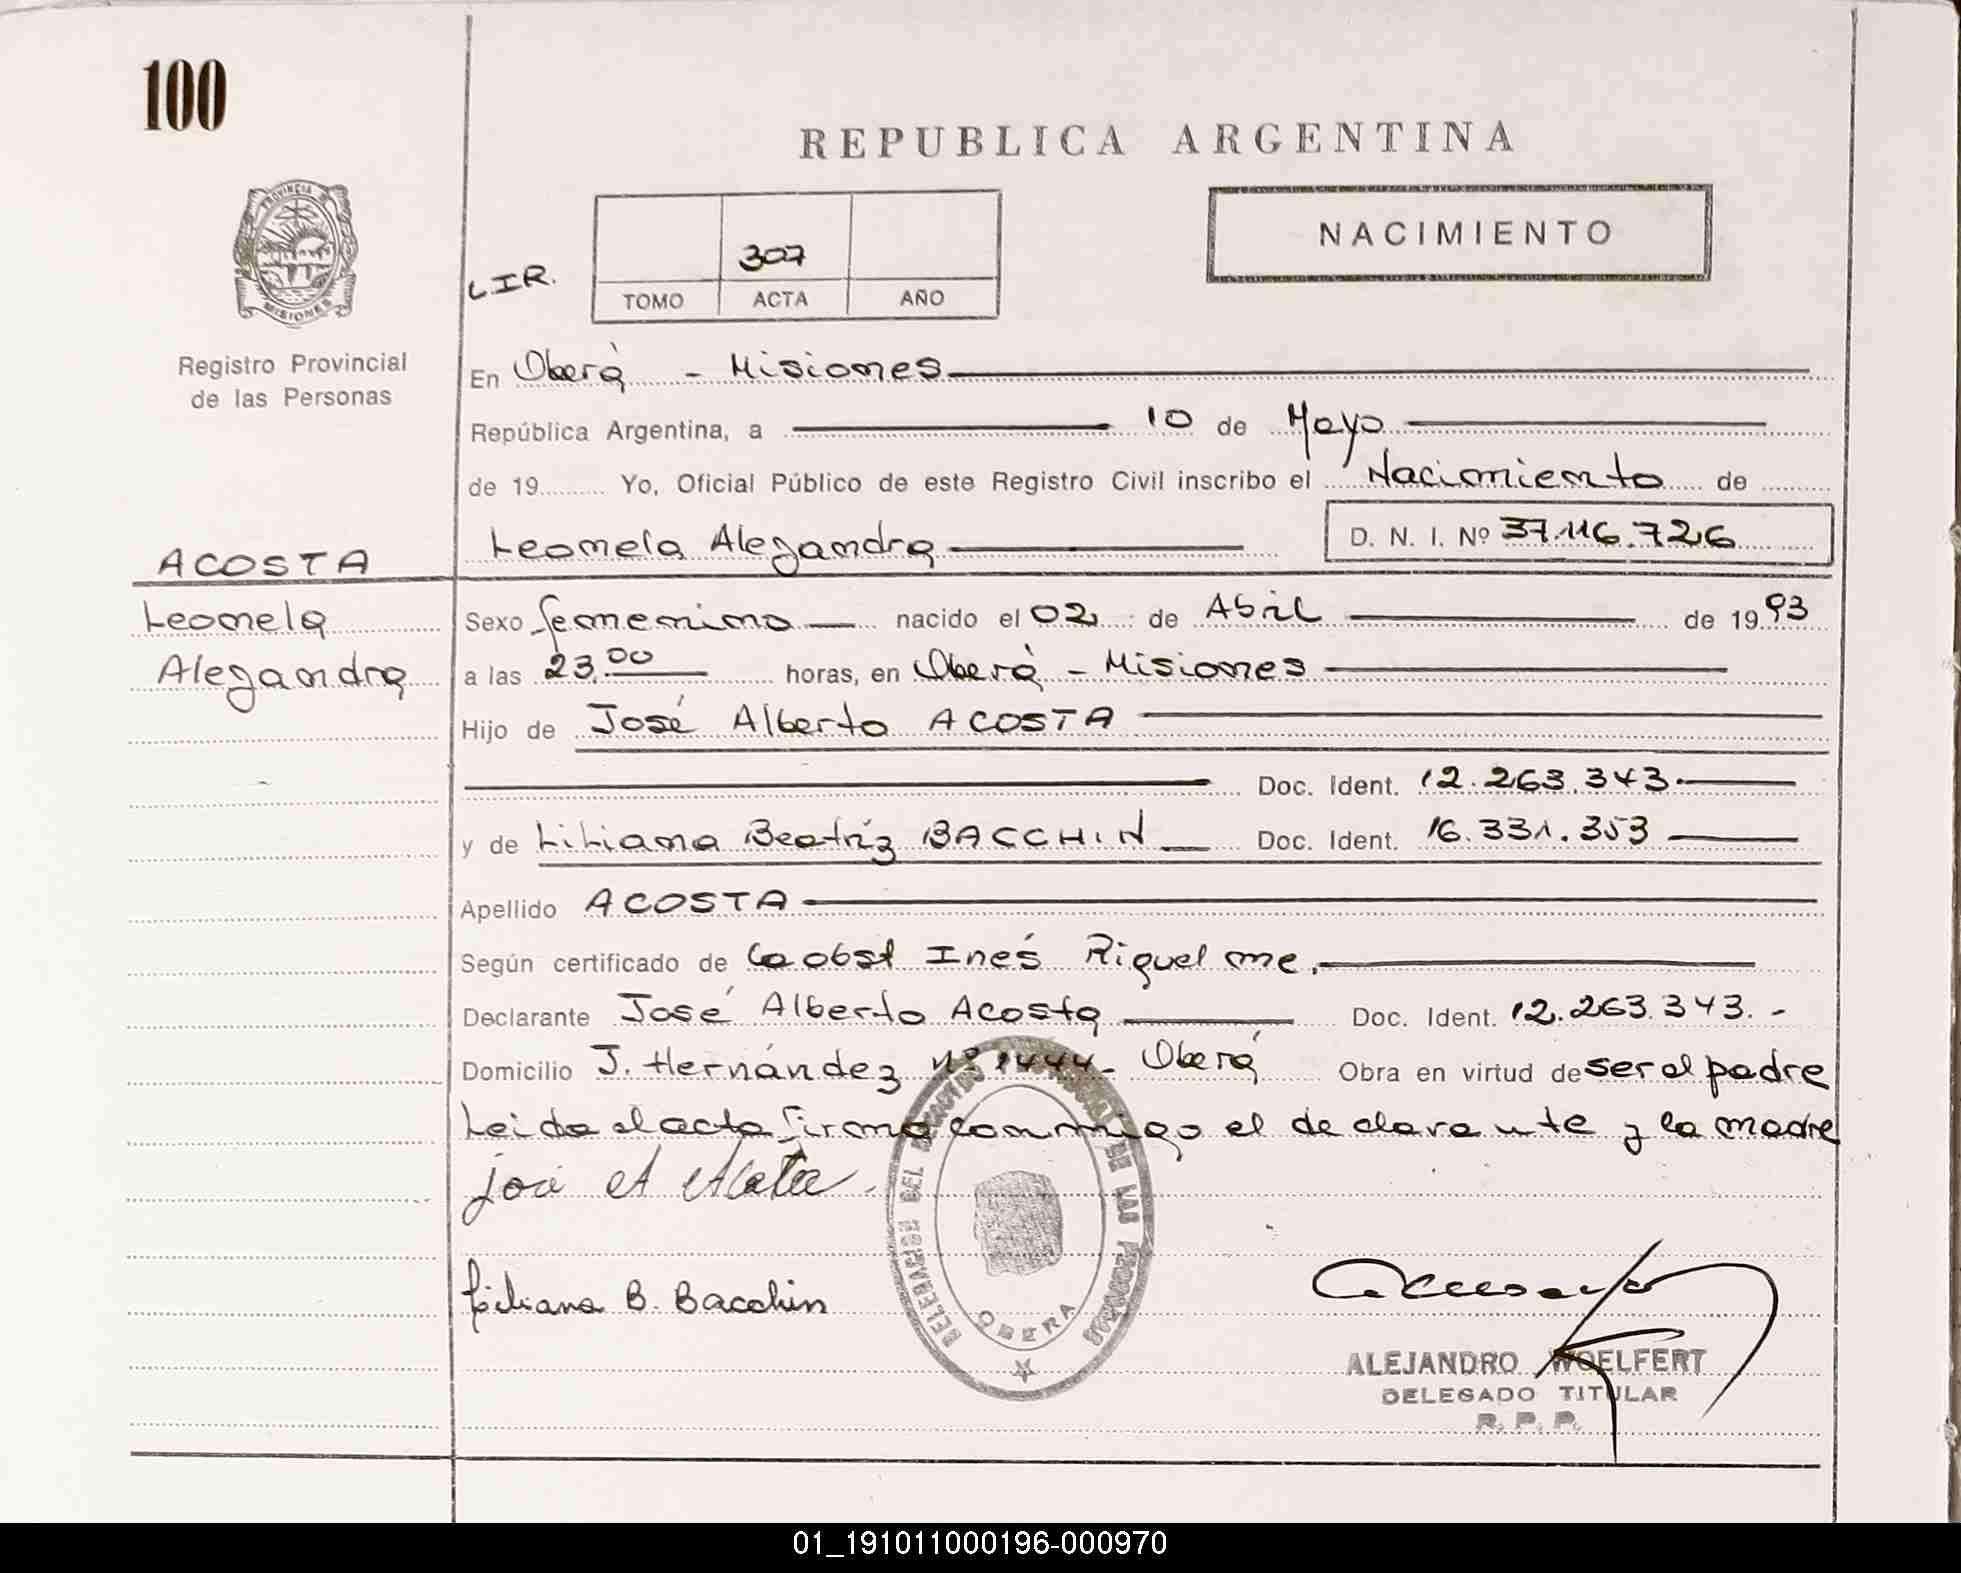 100
REPUBLICA ARGENTINA
NACIMIENTO
PROVINCIA
MISIONES
Registro Provincial
de las Personas
L.I.R.
307
TOMO ACTA AÑO
En Oberá - Misiones
República Argentina, a 10 de Mayo
de 19 Yo, Oficial Público de este Registro Civil inscribo el Nacimiento de
Leonela Alejandra D. N. I. Nº 37.116.726
ACOSTA
Leonela
Alejandra
Sexo femenino nacido el 02 de Abril de 1993
a las 23.00 horas, en Oberá - Misiones
Hijo de José Alberto ACOSTA
Doc. Ident. 12.263.343
y de Liliana Beatríz BACCHIN Doc. Ident. 16.331.353
Apellido ACOSTA
Según certificado de la obst Inés Riquelme.
Declarante José Alberto Acosta Doc. Ident. 12.263.343. -
Domicilio J. Hernández Nº 1444- Oberá Obra en virtud de ser el padre
Leida el acta firma conmigo el declarante y la madre
Liliana B. Bacchin
DE LAS PERSONAS
OBERA
ALEJANDRO WOELFERT
DELEGADO TITULAR
R. P. P.
01_191011000196-000970